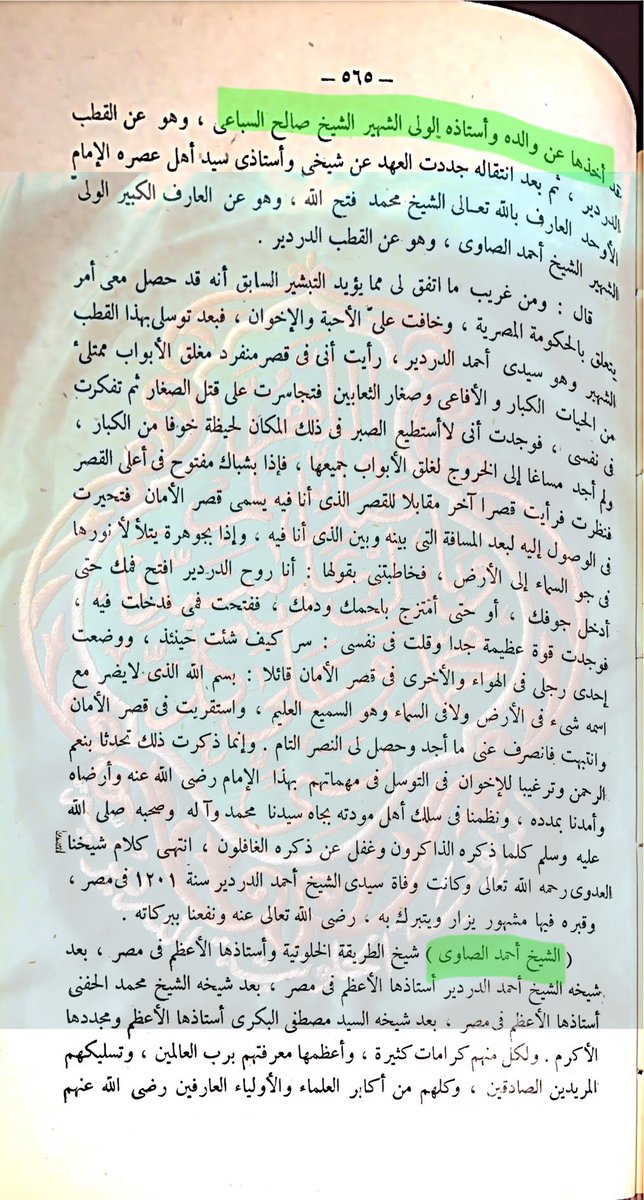 — ٥٦٥ —
قد أخذها عن والده وأستاذه الولى الشهير الشيخ صالح السباعى ، وهو عن القطب
الدردير ، ثم بعد انتقاله جددت العهد عن شيخى وأستاذى سيد أهل عصره الإمام
الأوحد العارف بالله تعالى الشيخ محمد فتح الله ، وهو عن العارف الكبير الولىّ
الشهير الشيخ أحمد الصاوى ، وهو عن القطب الدردير .
قال : ومن غريب ما اتفق لى مما يؤيد التبشير السابق أنه قد حصل معى أمر
يتعلق بالحكومة المصرية ، وخافت علىّ الأحبة والإخوان ، فبعد توسلى بهذا القطب
الشهير وهو سيدى أحمد الدردير ، رأيت أنى فى قصر منفرد مغلق الأبواب ممتلىء
من الحيات الكبار و الأفاعى وصغار الثعابين فتجاسرت على قتل الصغار ثم تفكرت
فى نفسى ، فوجدت أنى لاأستطيع الصبر فى ذلك المكان لحيظة خوفا من الكبار ،
ولم أجد مساغا إلى الخروج لغلق الأبواب جميعها ، فإذا بشباك مفتوح فى أعلى القصر
فنظرت فرأيت قصرا آخر مقابلا للقصر الذى أنا فيه يسمى قصر الأمان فتحيرت
فى الوصول إليه لبعد المسافة التى بينه وبين الذى أنا فيه ، وإذا بجوهرة يتلألأ نورها
فى جو السماء إلى الأرض ، فخاطبتنى بقولها : أنا روح الدردير افتح فمك حتى
أدخل جوفك ، أو حتى أمتزج بلحمك ودمك ، ففتحت فمى فدخلت فيه ،
فوجدت قوة عظيمة جدا وقلت فى نفسى : سر كيف شئت حينئذ ، ووضعت
إحدى رجلى فى الهواء والأخرى فى قصر الأمان قائلا : بسم الله الذى لايضر مع
اسمه شىء فى الأرض ولافى السماء وهو السميع العليم ، واستقريت فى قصر الأمان
وانتبهت فانصرف عنى ما أجد وحصل لى النصر التام . وإنما ذكرت ذلك تحدثا بنعم
الرحمن وترغيبا للإخوان فى التوسل فى مهماتهم بهذا الإمام رضى الله عنه وأرضاه
وأمدنا بمدده ، ونظمنا فى سلك أهل مودته بجاه سيدنا محمد وآله وصحبه صلى الله
عليه وسلم كلما ذكره الذاكرون وغفل عن ذكره الغافلون ، انتهى كلام شيخنا
العدوى رحمه الله تعالى وكانت وفاة سيدى الشيخ أحمد الدردير سنة ١٢٠١ فى مصر ،
وقبره فيها مشهور يزار ويتبرك به ، رضى الله تعالى عنه ونفعنا ببركاته .
( الشيخ أحمد الصاوى ) شيخ الطريقة الخلوتية وأستاذها الأعظم فى مصر ، بعد
شيخه الشيخ أحمد الدردير أستاذها الأعظم فى مصر ، بعد شيخه الشيخ محمد الحفنى
أستاذها الأعظم فى مصر ، بعد شيخه السيد مصطفى البكرى أستاذها الأعظم ومجددها
الأكرم . ولكل منهم كرامات كثيرة ، وأعظمها معرفتهم برب العالمين ، وتسليكهم
المريدين الصادقين ، وكلهم من أكابر العلماء والأولياء العارفين رضى الله عنهم